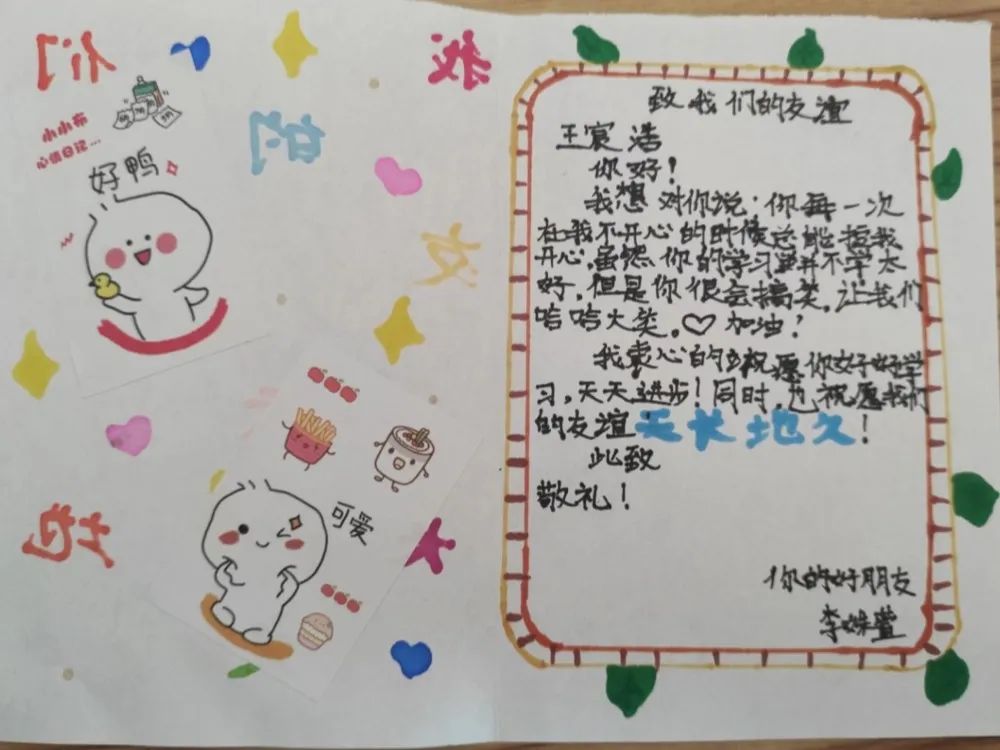 我
们
的
友
小小布
心情日记...
好鸭
可爱
致我们的友谊
王宸浩
你好！
我想对你说：你每一次
在我不开心的时候总能我
开心，虽然你的学习并不学太
好，但是你很会搞笑，让我们
哈哈大笑。♡加油！
我衷心的祝愿你好好学
习，天天进步！同时，也祝愿我们
的友谊天长地久！
此致
敬礼！
你的好朋友
李姝萱